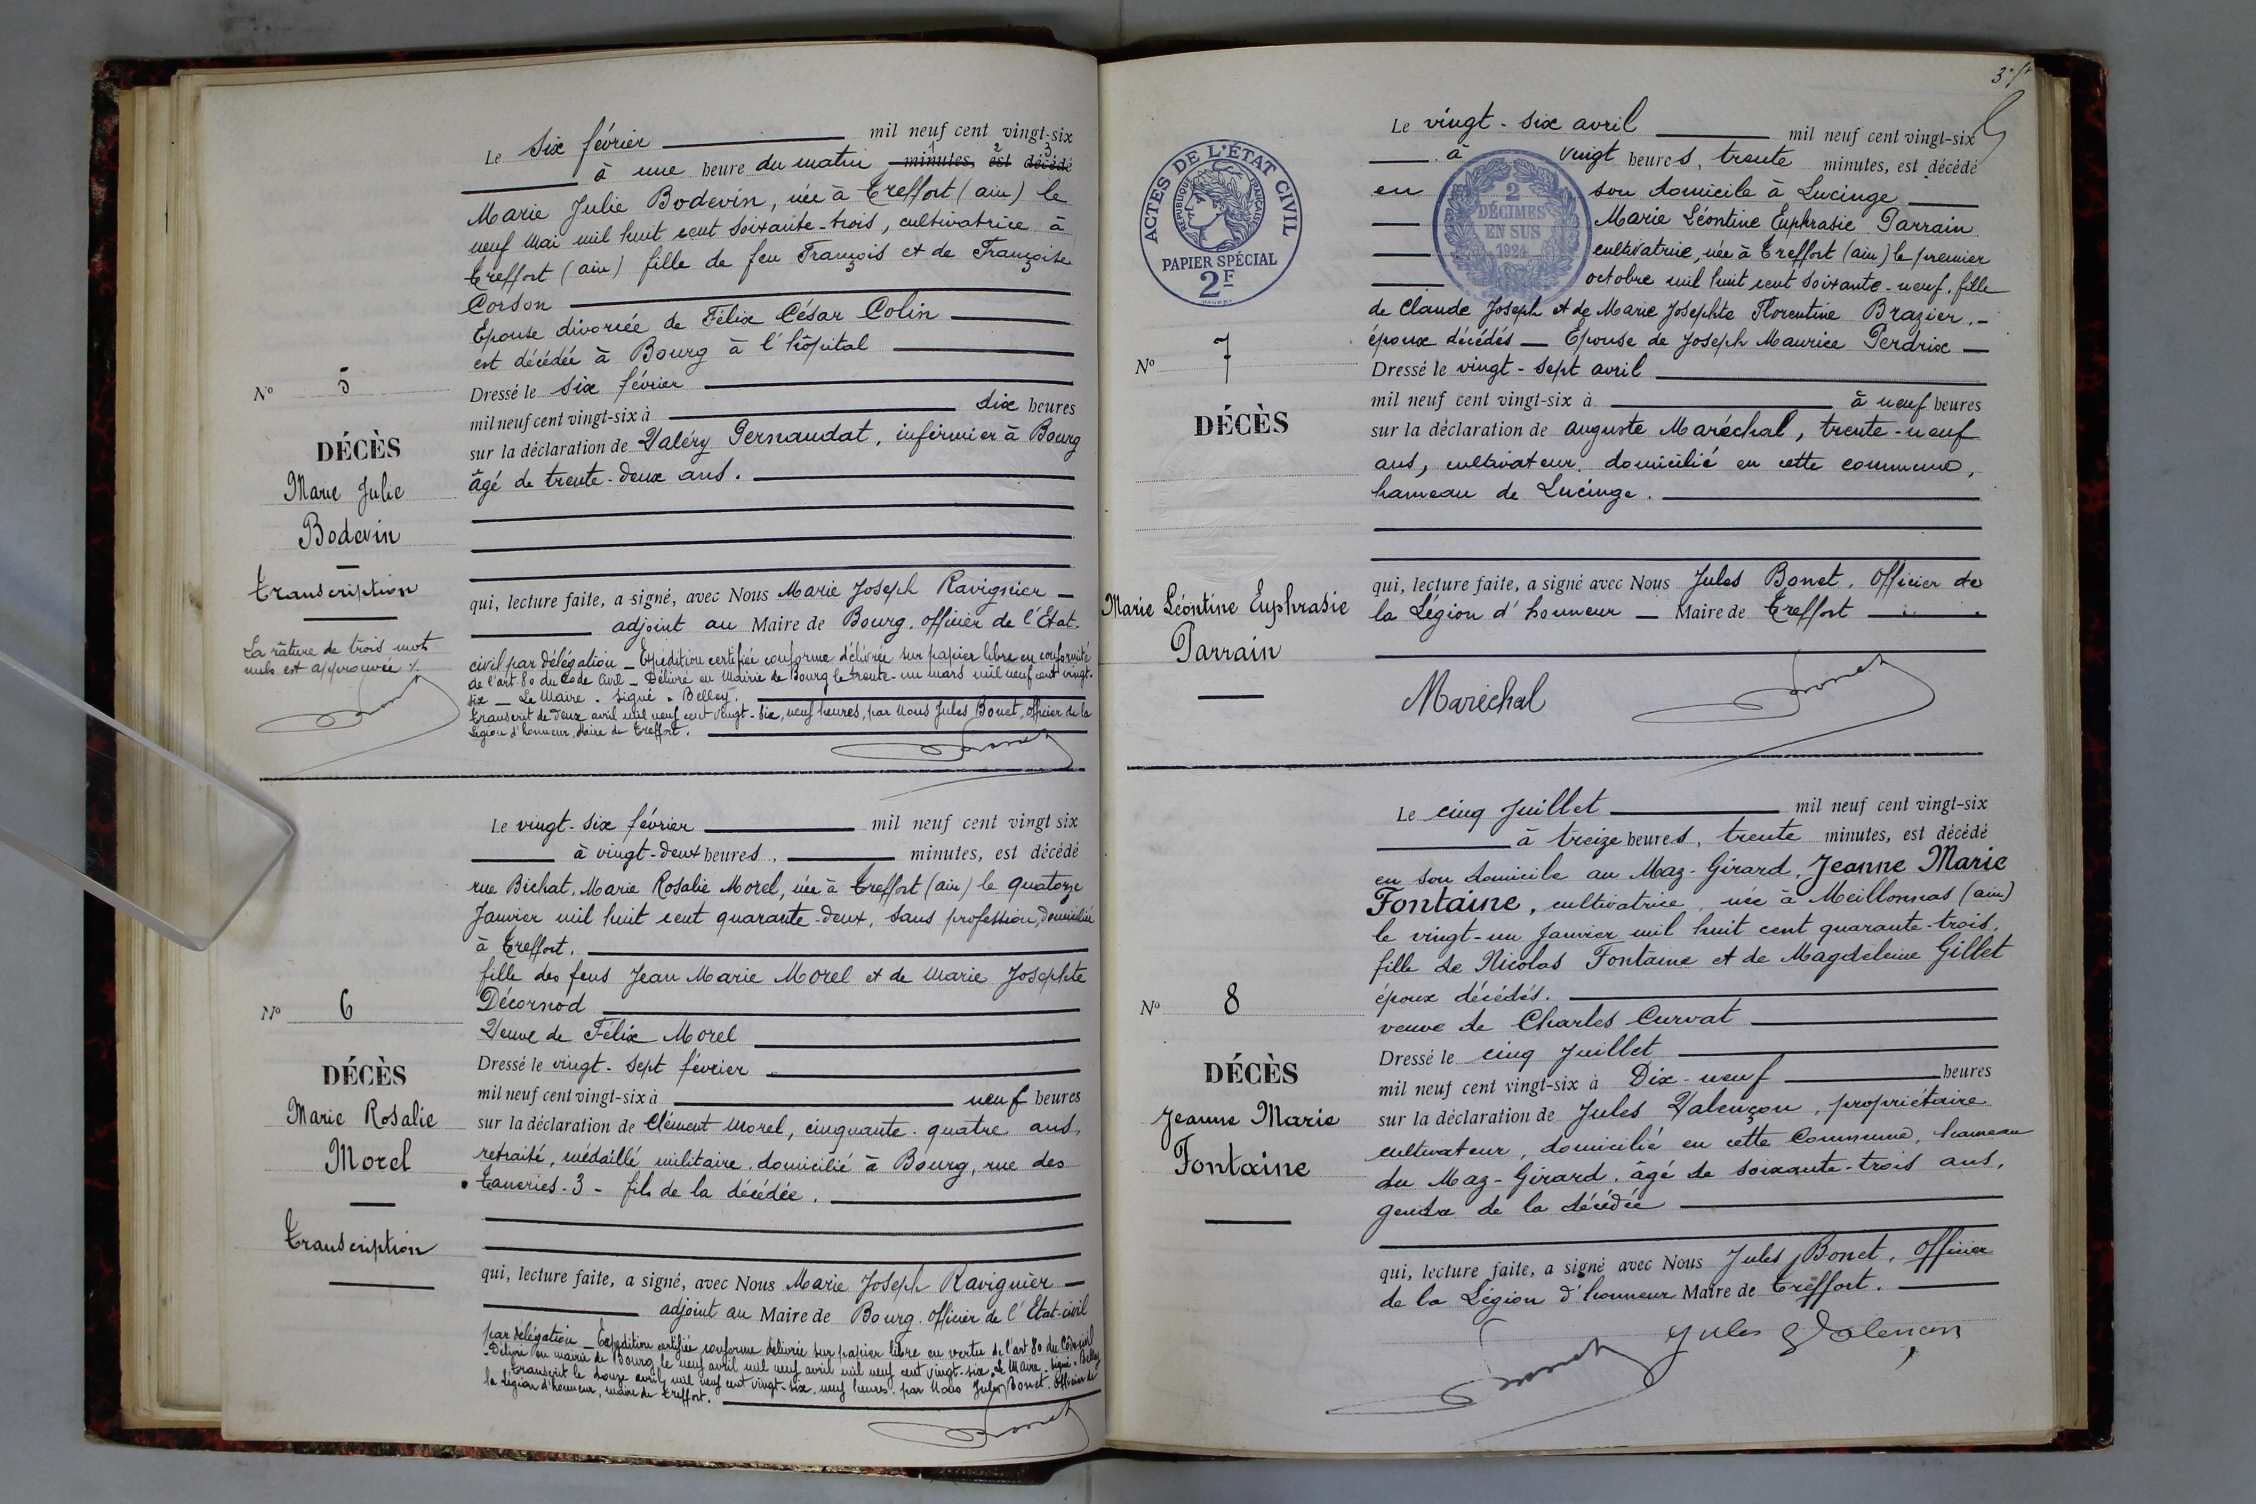 Le six février mil neuf cent vingt-six
à une heure du matin minutes, est décédé
1 2 3
Marie Julie Bodevin, née à Treffort (ain) le
neuf Mai mil huit cent soixante-trois, cultivatrice à
Treffort (ain) fille de feu François et de Françoise
Corson
Epouse divorcée de Félix César Colin
est décédée à Bourg à l'hôpital
Dressé le six février
mil neuf cent vingt-six à dix heures
sur la déclaration de Valéry Pernaudat, infirmier à Bourg
âgé de trente-deux ans.
qui, lecture faite, a signé, avec Nous Marie Joseph Ravignier
adjoint au Maire de Bourg. Officier de l'Etat.
civil par délégation _ Expédition certifiée conforme délivrée sur papier libre en conformité
de l'art 80 du Code Civil _ Délivré en Mairie de Bourg le trente-un mars mil neuf cent vingt-
six _ Le Maire. signé. Belley.
Transcrit le deux avril mil neuf cent vingt-six, neuf heures, par Nous Jules Bonet, Officier de la
Légion d'honneur, Maire de Treffort.
Bonet
N° 5
DÉCÈS
Marie Julie
Bodevin
Transcription
La râture de trois mots
nuls est approuvée ./.
Bonet
Le vingt-six février mil neuf cent vingt six
à vingt-deux heures, minutes, est décédé
rue Bichat, Marie Rosalie Morel, née à Treffort (ain) le quatorze
Janvier mil huit cent quarante-deux, sans profession, domiciliée
à Treffort.
fille des feus Jean Marie Morel et de Marie Josephte
Décornod
Veuve de Félix Morel
Dressé le vingt-sept février
mil neuf cent vingt-six à neuf heures
sur la déclaration de Clément Morel, cinquante-quatre ans,
retraité, médaillé militaire, domicilié à Bourg, rue des
Tanneries-3- fils de la décédée.
qui, lecture faite, a signé, avec Nous Marie Joseph Ravignier
adjoint au Maire de Bourg. Officier de l'Etat-civil
par délégation _ Expédition certifiée conforme délivrée sur papier libre en vertu de l'art 80 du Code civil
Délivré en mairie de Bourg le neuf avril mil neuf avril mil neuf cent vingt-six. Le Maire. signé. Belley
Transcrit le douze avril mil neuf cent vingt-six, neuf heures. par Nous Jules Bonet. Officier de
la Légion d'honneur, maire de Treffort.
Bonet
N° 6
DÉCÈS
Marie Rosalie
Morel
Transcription
ACTES DE L'ÉTAT CIVIL
RÉPUBLIQUE FRANÇAISE
PAPIER SPÉCIAL
2F
2
DÉCIMES
EN SUS
1924
Le vingt-six avril mil neuf cent vingt-six
à vingt heures, trente minutes, est décédé
en son domicile à Lucinge
Marie Léontine Euphrasie Parrain
cultivatrice, née à Treffort (ain) le premier
octobre mil huit cent soixante-neuf. fille
de Claude Joseph et de Marie Josephte Florentine Brazier.-
époux décédés _ Epouse de Joseph Maurice Perdrix _
Dressé le vingt-sept avril
mil neuf cent vingt-six à à neuf heures
sur la déclaration de Auguste Maréchal, trente-neuf
ans, cultivateur, domicilié en cette commune,
hameau de Lucinge.
qui, lecture faite, a signé avec Nous Jules Bonet. Officier de
la Légion d'honneur _ Maire de Treffort
Maréchal
Bonet
N° 7
DÉCÈS
Marie Léontine Euphrasie
Parrain
Le cinq Juillet mil neuf cent vingt-six
à treize heures, trente minutes, est décédé
en son domicile au Maz-Girard, Jeanne Marie
Fontaine, cultivatrice, née à Meillonnas (ain)
le vingt-un Janvier mil huit cent quarante-trois.
fille de Nicolas Fontaine et de Magdeleine Gillet
époux décédés.
veuve de Charles Curvat
Dressé le cinq Juillet
mil neuf cent vingt-six à Dix-neuf heures
sur la déclaration de Jules Valençon, propriétaire
cultivateur, domicilié en cette Commune, hameau
du Maz-Girard, âgé de soixante-trois ans,
gendre de la décédée
qui, lecture faite, a signé avec Nous Jules Bonet. Officier
de la Légion d'honneur Maire de Treffort.
Bonet
Jules Valençon
N° 8
DÉCÈS
Jeanne Marie
Fontaine